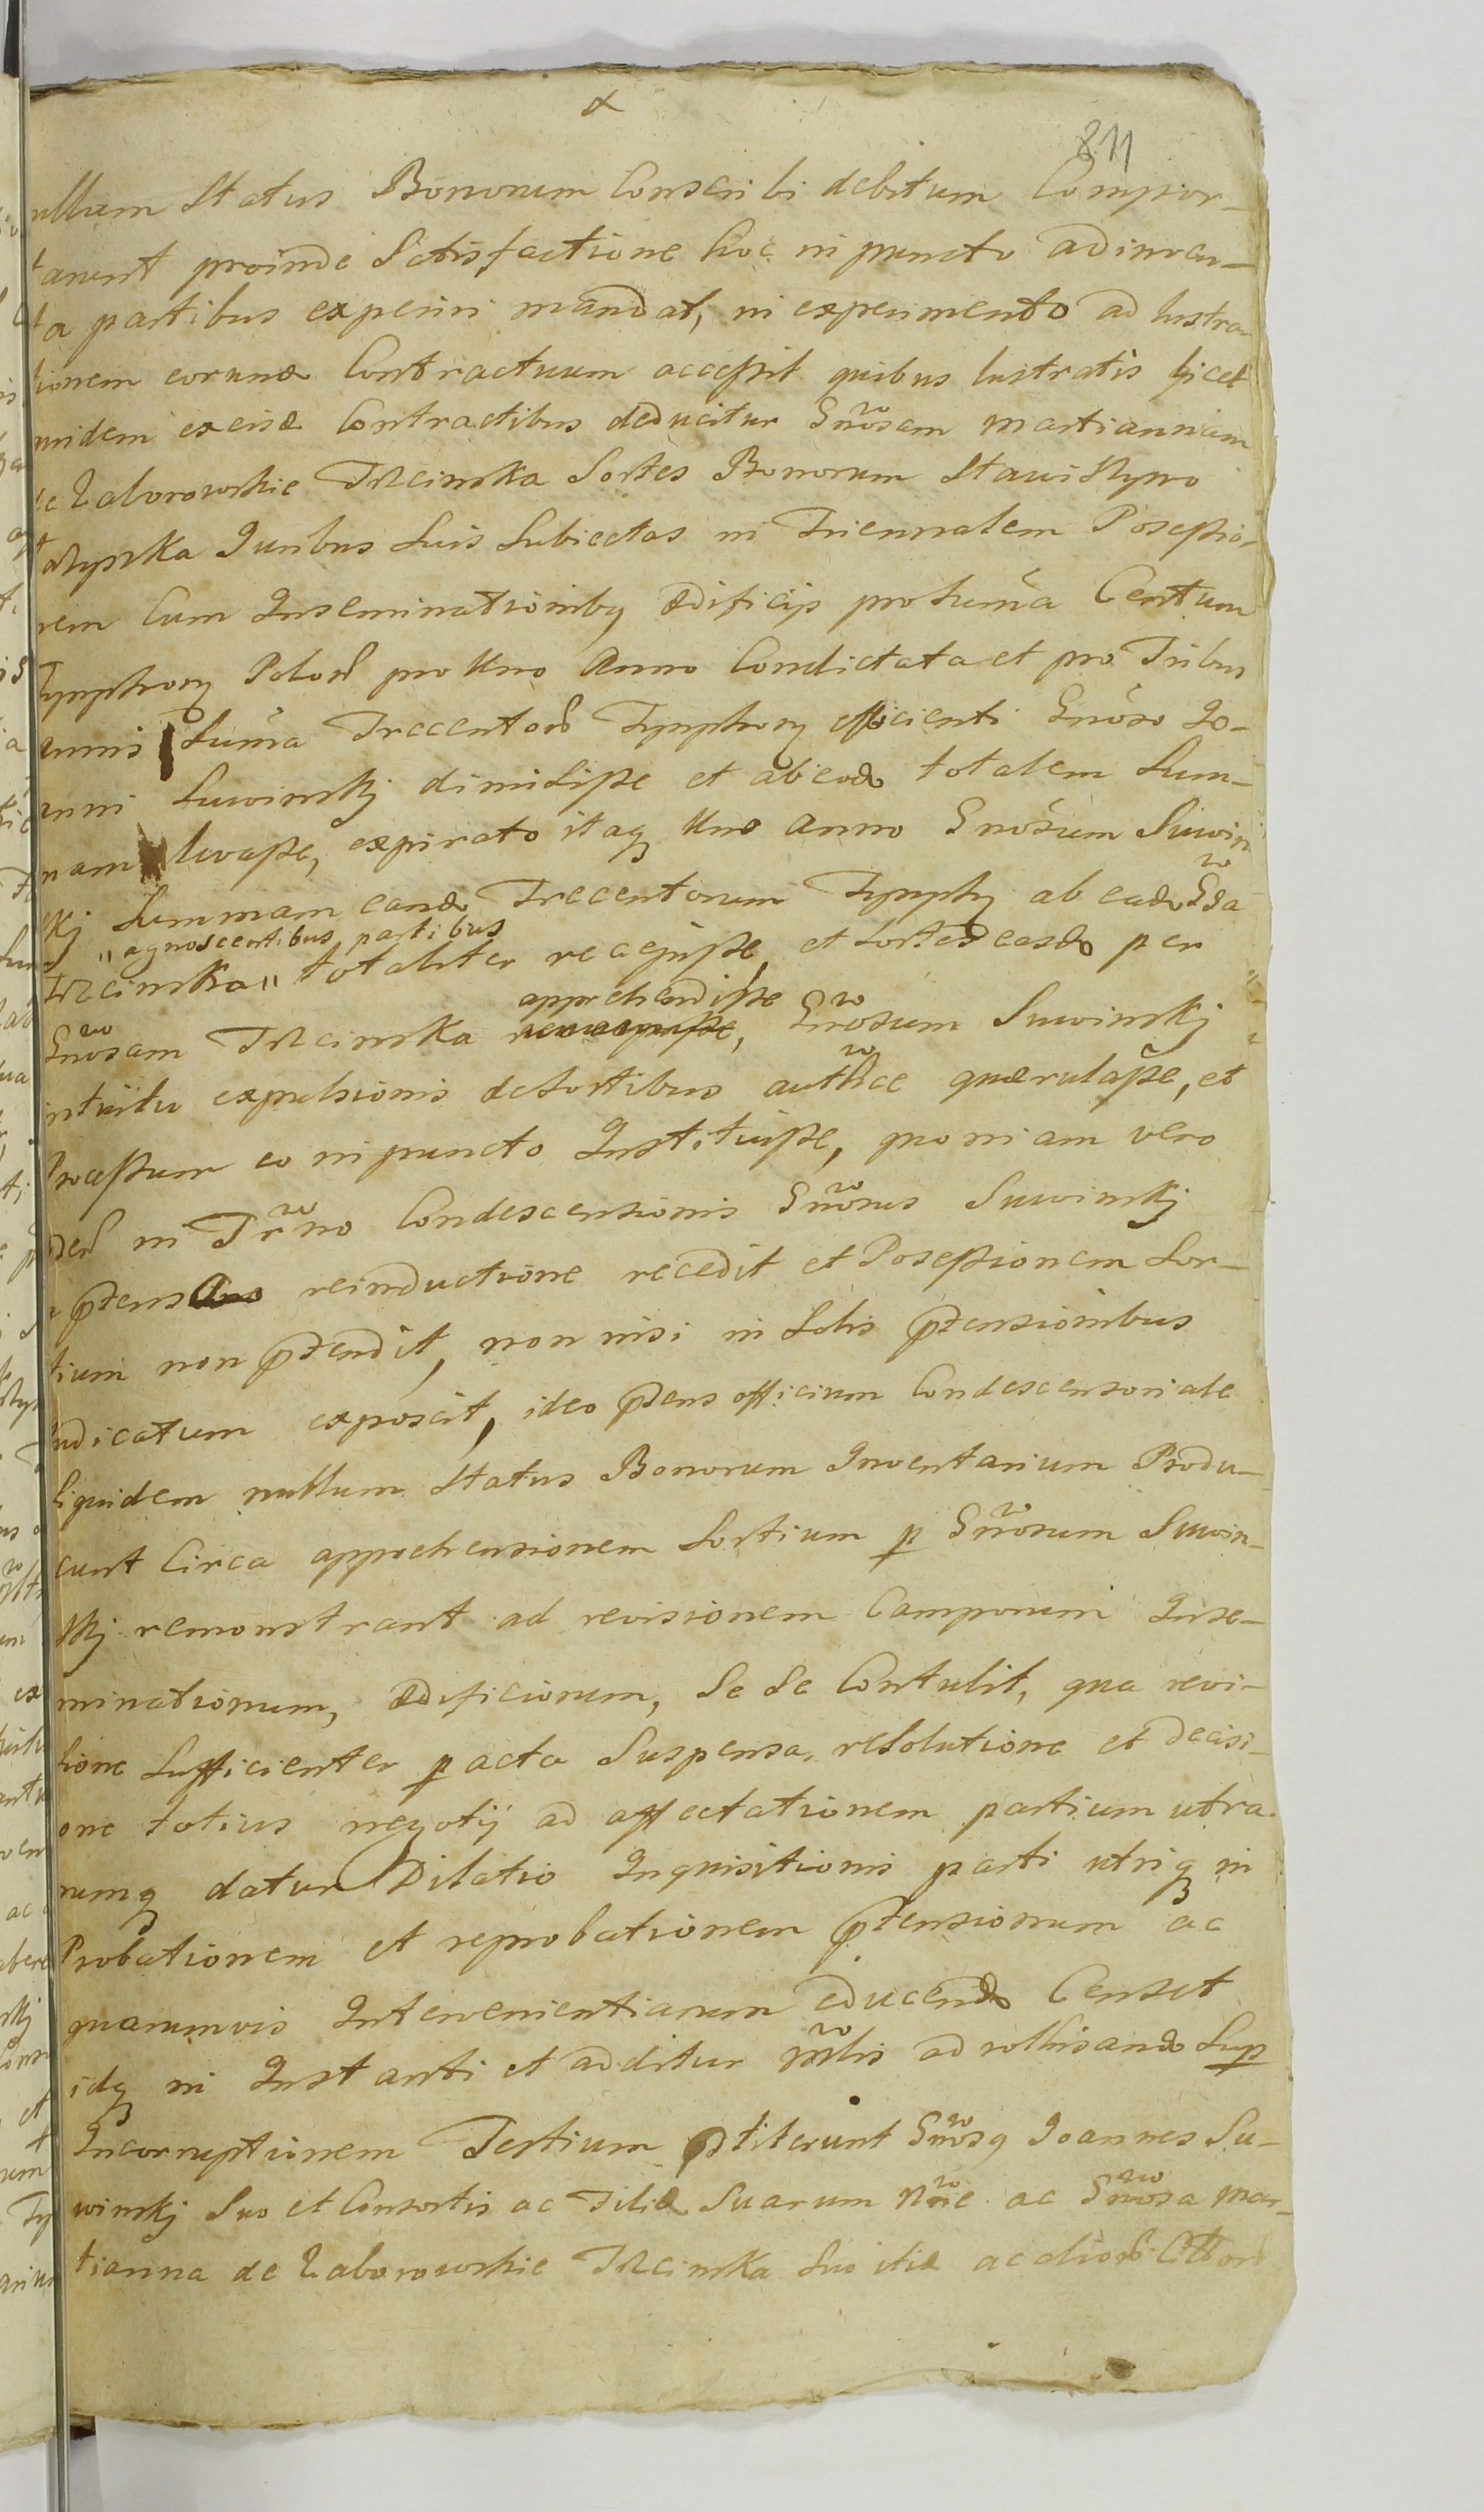 x
811
ullum Status Bonorum Conscribi debitum Compor-
tarent proinde Satisfactione hoc in puncto adinven-
ta partibus experiri mandat, in experimento ad lustra-
tionem eorund Contractuum accessit quibus lustratis licet
quidem ex eisd Contractibus deducitur Gnosam Martiannam
de Zaborowskie Trzcinska Sortes Bonorum Stawiszyno
Juribus Suis Subiectas in Triennalem Possessio-
nem Cum Inseminationibq Ædificijs pro Sum̃a Centum
Tynphorq Polon pro Uno Anno Condictata et pro Tribus
annis Sum̃a Trecentor Tynphorq efficienti Gnoso Jo-
anni Suwinskj dimisisse et ab eod totalem Sum-
mam levasse, expirato itaq Uno anno Gnosum Suwin
skj Summam eand Trecentorum Tynphq ab ead Gsa
"agnoscentibus partibus
Trzcinska" totaliter recepisse, et Sortes easd per
apprehendisse
Gnosam Trzcinska, Gnosum Suwinskj
intuitu expulsionis de Sortibus authce quærulasse, et
Processum eo in puncto Instituisse, quoniam vero
in Trno Condescensionis Gnosus Suwinskj
ptens reinductione recedit et Possessionem Sor-
tium non ptendit, non nisi in Solis ptensionibus
Judicatum exposcit, ideo ptens officium Condescensoriale
Siquidem nullum Status Bonorum Inventarium Produ-
cunt Circa apprehensionem Sortium p Gnosum Suwin-
skj remonstrant ad revisionem Camporum Inse-
minationum, Ædificiorum, Se Se Contulit, qua revi-
sione Sufficienter pacta Suspensa, resolutione et decisi-
one totius negotij ad affectationem partium utra-
rumq datur Dilatio Inquisitionis parti utriq in
Probationem et reprobationem ptensionum ac
quarumvis Intervenientiarum educend Censet
idq in Instanti et additur Mlis ad rothisand Sup
Incorruptionem Testium pstiterunt Gnosq Joannes Su-
winskj Suo et Consortis ac Filiæ Suarum Nne ac Gnosa Mar-
tianna de Zaborowskie Trzcinska Suo itid ac alior